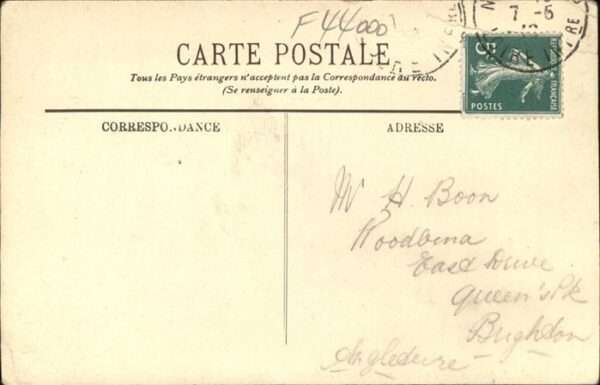 F 44000
7 -5
CARTE POSTALE
Tous les Pays étrangers n'acceptent pas la Correspondance au recto.
(Se renseigner à la Poste).
5c
POSTES
CORRESPONDANCE
ADRESSE
Mr H. Boon
Woodbina
East Drive
Queen's Pk
Brighton
Angleterre